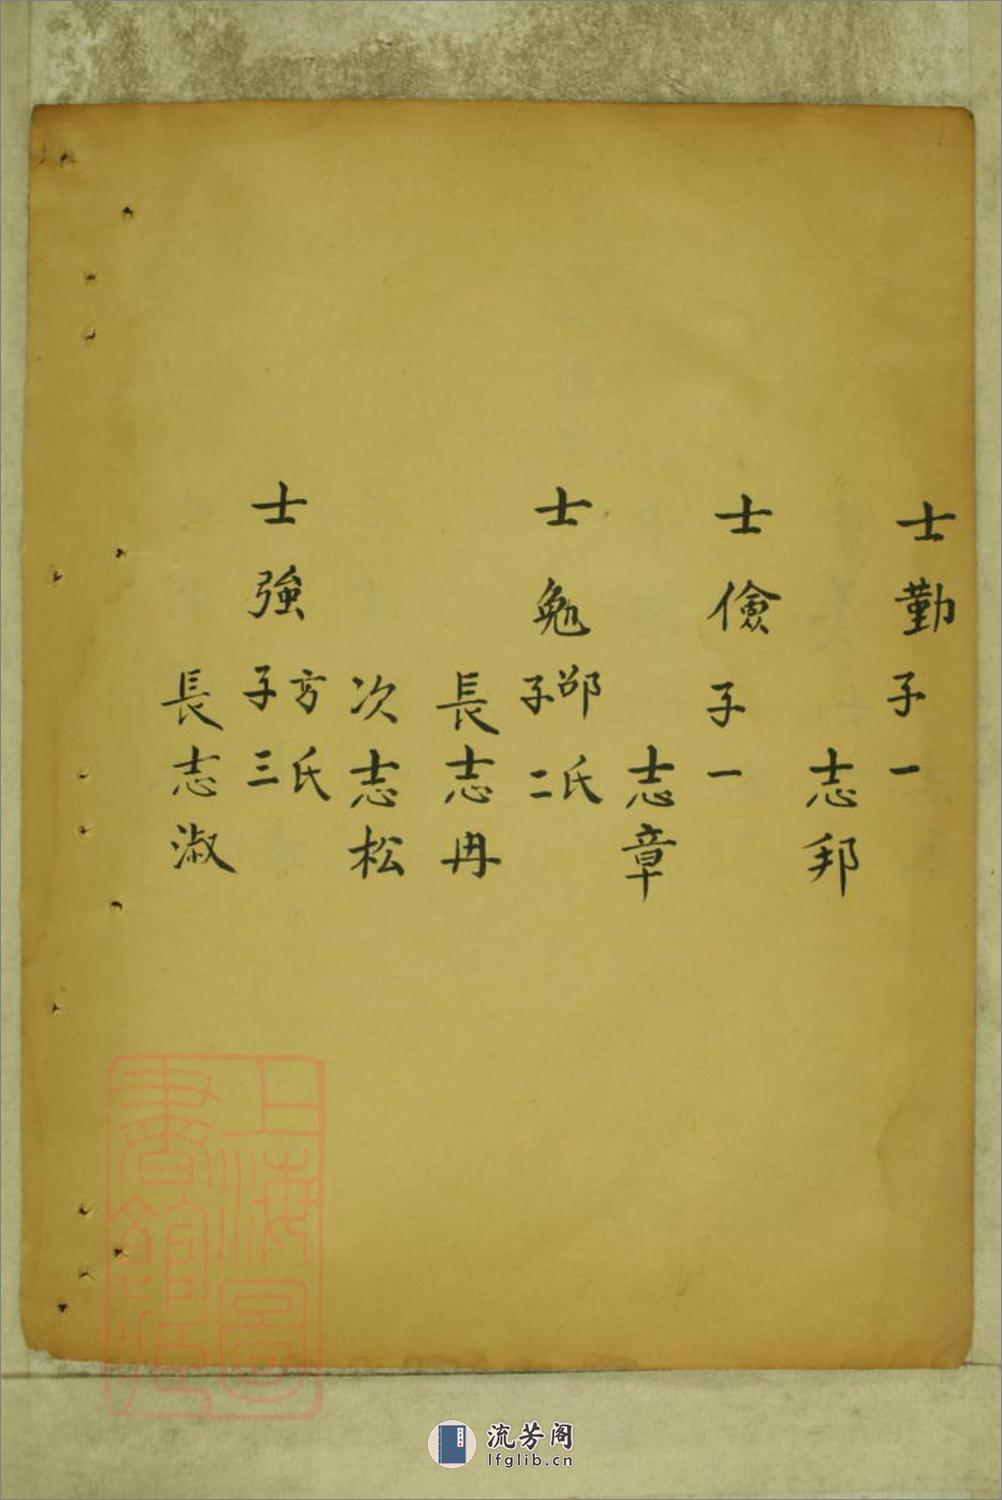 士勤子一
志邦
士儉子一
志章
士勉邵氏
子二
長志冉
次志松
士強方氏
子三
長志淑
上海圖
書館藏
流芳阁
lfglib.cn